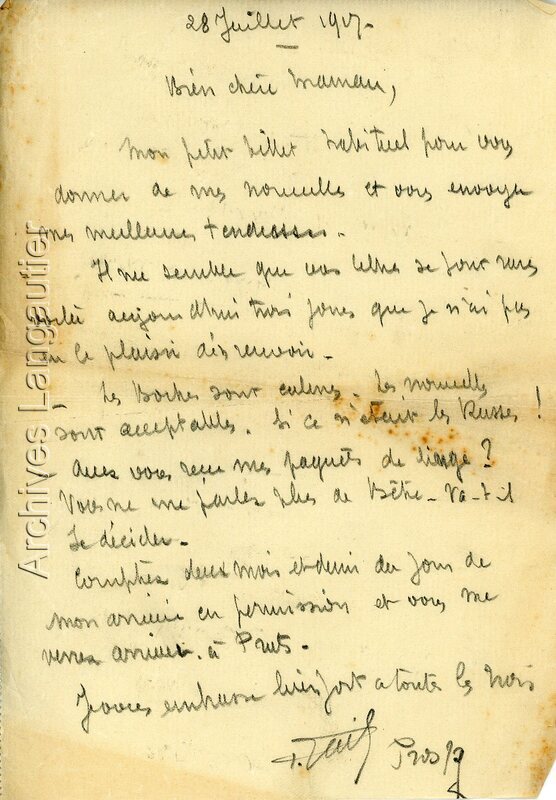 28 Juillet 1917.
Bien chère Maman,
Mon petit billet habituel pour vous
donner de mes nouvelles et vous envoyer
mes meilleures tendresses.
Il me semble que vos lettres se font rares
voilà aujourd'hui trois jours que je n'ai pas
eu le plaisir d'en recevoir.
Les Boches sont calmes. Les nouvelles
sont acceptables. Si ce n'était les Russes !
Avez vous reçu mes paquets de linge ?
Vous ne me parlez plus de . Va-t-il
se décider.
Comptez deux mois et demi du jour de
mon arrivée en permission et vous me
verrez arriver. à
Je vous embrasse bien fort à toutes les trois
Archives Langautier